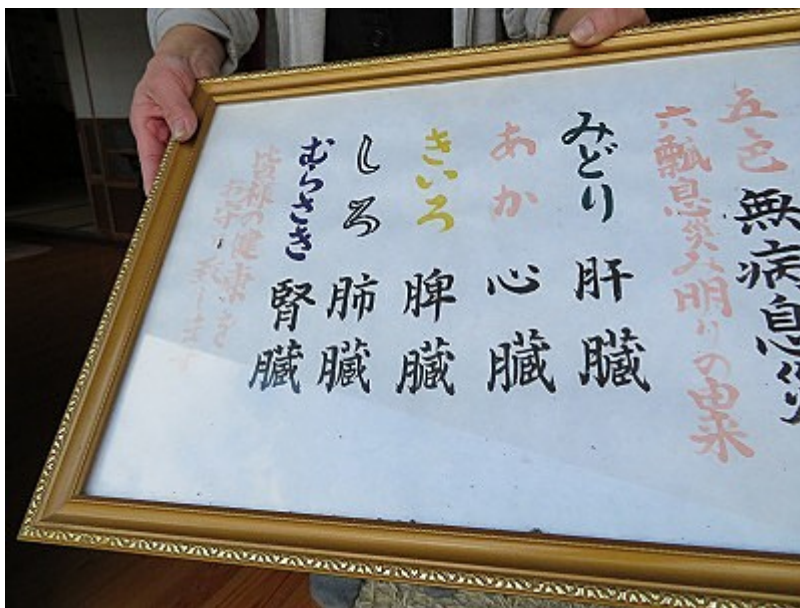 五色無病息災
六瓢息災み明りの由来
みどり 肝臓
あか 心臓
きいろ 脾臓
しろ 肺臓
むらさき 腎臓
皆様の健康を
お守り致します